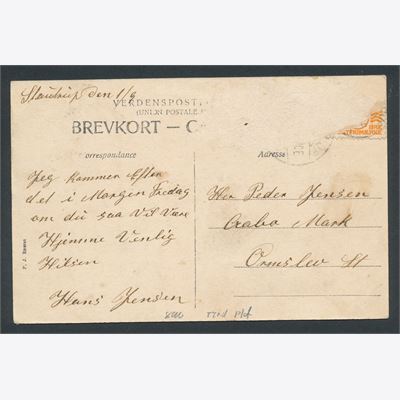 Stautrup den 1/9
VERDENSPOST
(UNION POSTALE
BREVKORT — C
Correspondance
Adresse
Jeg kommer Efter
det i Morgen Fredag
om du saa Vil Være
Hjemme Venlig
Hilsen
Hans Jensen
Her Peder Jensen
Constantia Mark
Ormslev St